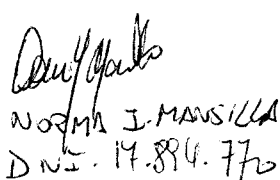 NORMA I. MANSILLA
DNI. 17.894.770